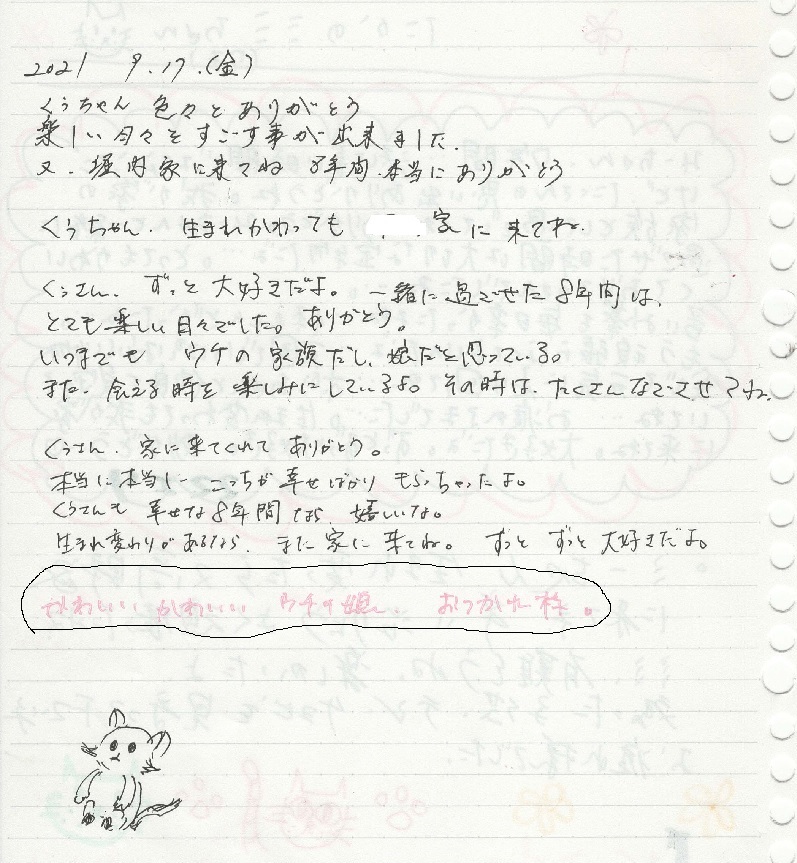 2021 9.17.(金)
くぅちゃん 色々と ありがとう
楽しい日々をすごす事が出来ました.
又、堀内家に来てね 8年間.本当にありがとう
くぅちゃん. 生まれかわっても 家に来てね.
くぅさん、ずっと大好きだよ。一緒に過ごせた8年間は、
とても楽しい日々でした。ありがとう。
いつまでも ウチの家族だし、娘だと思っている。
また、会える時を楽しみにしているよ。その時は、たくさんなでさせてね.
くぅさん、家に来てくれて ありがとう。
本当に本当に こっちが幸せばかり もらっちゃったよ。
くぅさんも 幸せな8年間なら 嬉しいな。
生まれ変わりがあるなら、また家に来てね。ずっと ずっと大好きだよ。
かわいい かわいい ウチの娘、 おつかれ様。